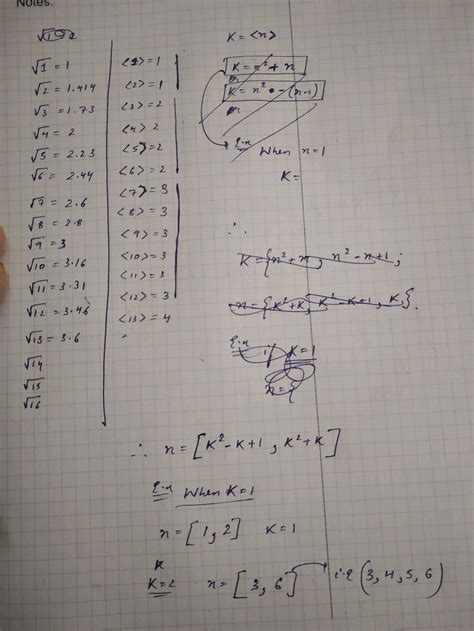 Notes.
√1 = 1
√2 = 1.414
√3 = 1.73
√4 = 2
√5 = 2.23
√6 = 2.44
√7 = 2.6
√8 = 2.8
√9 = 3
√10 = 3.16
√11 = 3.31
√12 = 3.46
√13 = 3.6
√14
√15
√16
<1> = 1
<2> = 1
<3> = 2
<4> 2
<5> = 2
<6> = 2
<7> = 3
<8> = 3
<9> = 3
<10> = 3
<11> = 3
<12> = 3
<13> = 4
K = <n>
K = n² + n
or
K = n² - (n-1)
or
Ex When n = 1
K =
∴
K = {n² + n, n² - n + 1,
n = {K² + K, K² - K + 1, K}.
Ex 1) K = 1
n = {
∴ n = [K² - K + 1, K² + K]
Ex When K = 1
n = [1, 2] K = 1
K
K = 2 n = [3, 6] → i.e (3, 4, 5, 6)